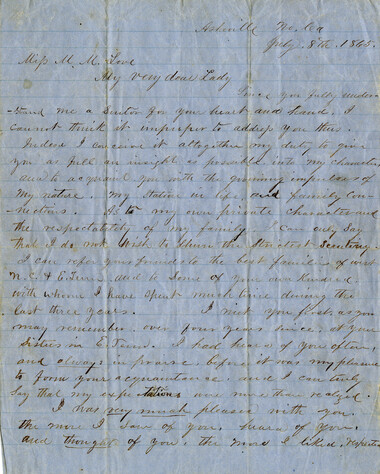 Ashville No. Ca
July 8th 1865.
Miss M. M. Love
My very dear Lady
Since you fully under
-stand me a Suitor for your heart and hand. I
cannot think it improper to address you thus.
Indeed I conceive it altogether my duty to give
you as full an insight as possible into my character
and to acquaint you with the governing impulses of
My nature. My Station in life, and family Con-
nections. As to my own private character and
the respectability of my family I can only Say
that I do not wish to Shun the Strictest Scrutiny.
I can refer your friends to the best families of west
N. C. & E. Tenn. and to Some of your own Kindred
with whom I have Spent much time during the
last three years. I met you first, as you
may remember over four years since, at your
Sisters in E. Tenn. I had heard of you often,
and always in praise before it was my pleasure
to form your acquaintance and I can truly
Say that my expectations were more than realized.
I was very much pleased with you.
the more I Saw of you, heard of you,
and thought of you, the more I liked,